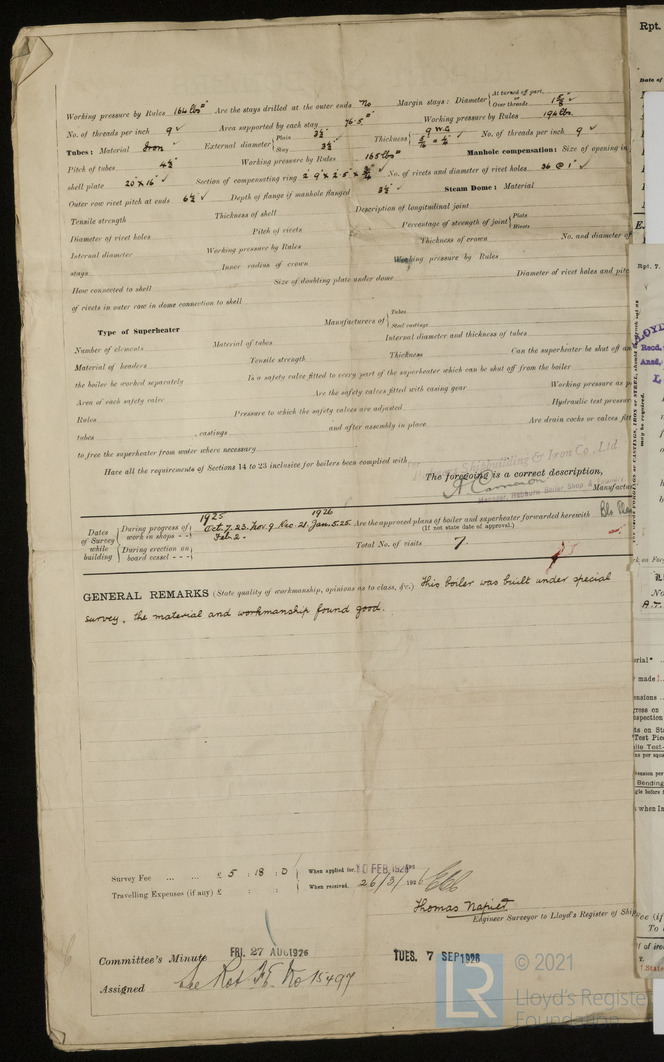 Working pressure by Rules 164 lbs□" Are the stays drilled at the outer ends No Margin stays: Diameter { At turned off part, or Over threads 1 5/8" ✓
No. of threads per inch 9 ✓ Area supported by each stay 76.5□" Working pressure by Rules 194 lbs.
Tubes: Material Iron ✓ External diameter { Plain 3½ Stay 3½ ✓ Thickness { 9 W.G. 5/16" & ¼" ✓ No. of threads per inch 9 ✓
Pitch of tubes 4½" Working pressure by Rules 165 lbs□" Manhole compensation: Size of opening in
shell plate 20" × 16" ✓ Section of compensating ring No. of rivets and diameter of rivet holes 36 @ 1" ✓
Outer row rivet pitch at ends 6½" ✓ Depth of flange if manhole flanged 3½" ✓ Steam Dome: Material
Tensile strength Thickness of shell Description of longitudinal joint
Diameter of rivet holes Pitch of rivets Percentage of strength of joint { Plate Rivets
Internal diameter Working pressure by Rules Thickness of crown No. and diameter of
stays Inner radius of crown Working pressure by Rules
How connected to shell Size of doubling plate under dome Diameter of rivet holes and pitc
of rivets in outer row in dome connection to shell
Type of Superheater Manufacturers of { Tubes Steel castings
Number of elements Material of tubes Internal diameter and thickness of tubes
Material of headers Tensile strength Thickness Can the superheater be shut off an
the boiler be worked separately Is a safety valve fitted to every part of the superheater which can be shut off from the boiler
Area of each safety valve Are the safety valves fitted with easing gear Working pressure as p
Rules Pressure to which the safety valves are adjusted Hydraulic test pressur
tubes , castings and after assembly in place Are drain cocks or valves fitt
to free the superheater from water where necessary
Have all the requirements of Sections 14 to 23 inclusive for boilers been complied with
Shipbuilding & Iron Co., Ltd.
The foregoing is a correct description,
A Cameron Manufactur
Manager, Hebburn Boiler Shop
1925 1926
Dates of Survey while building { During progress of work in shops - - Oct. 7. 23. Nov. 9. Dec. 21. Jan. 5. 25. Feb. 2. -
Are the approved plans of boiler and superheater forwarded herewith
(If not state date of approval.)
During erection on board vessel - - - Total No. of visits 7.
GENERAL REMARKS (State quality of workmanship, opinions as to class, &c.) This boiler was built under special
survey, the material and workmanship found good.
Survey Fee ... ... £ 5 : 18 : 0 When applied for, 10 FEB 1926
Travelling Expenses (if any) £ : : When received, 26/3/1926
Thomas Napier
Engineer Surveyor to Lloyd's Register of Ship
Committee's Minute FRI. 27 AUG 1926 TUES. 7 SEP 1926
Assigned See Rot No 15499
LR © 2021
Lloyd's Register
Foundation
Rpt.
Date of
Rpt. 7.
LLOYD
Recd.